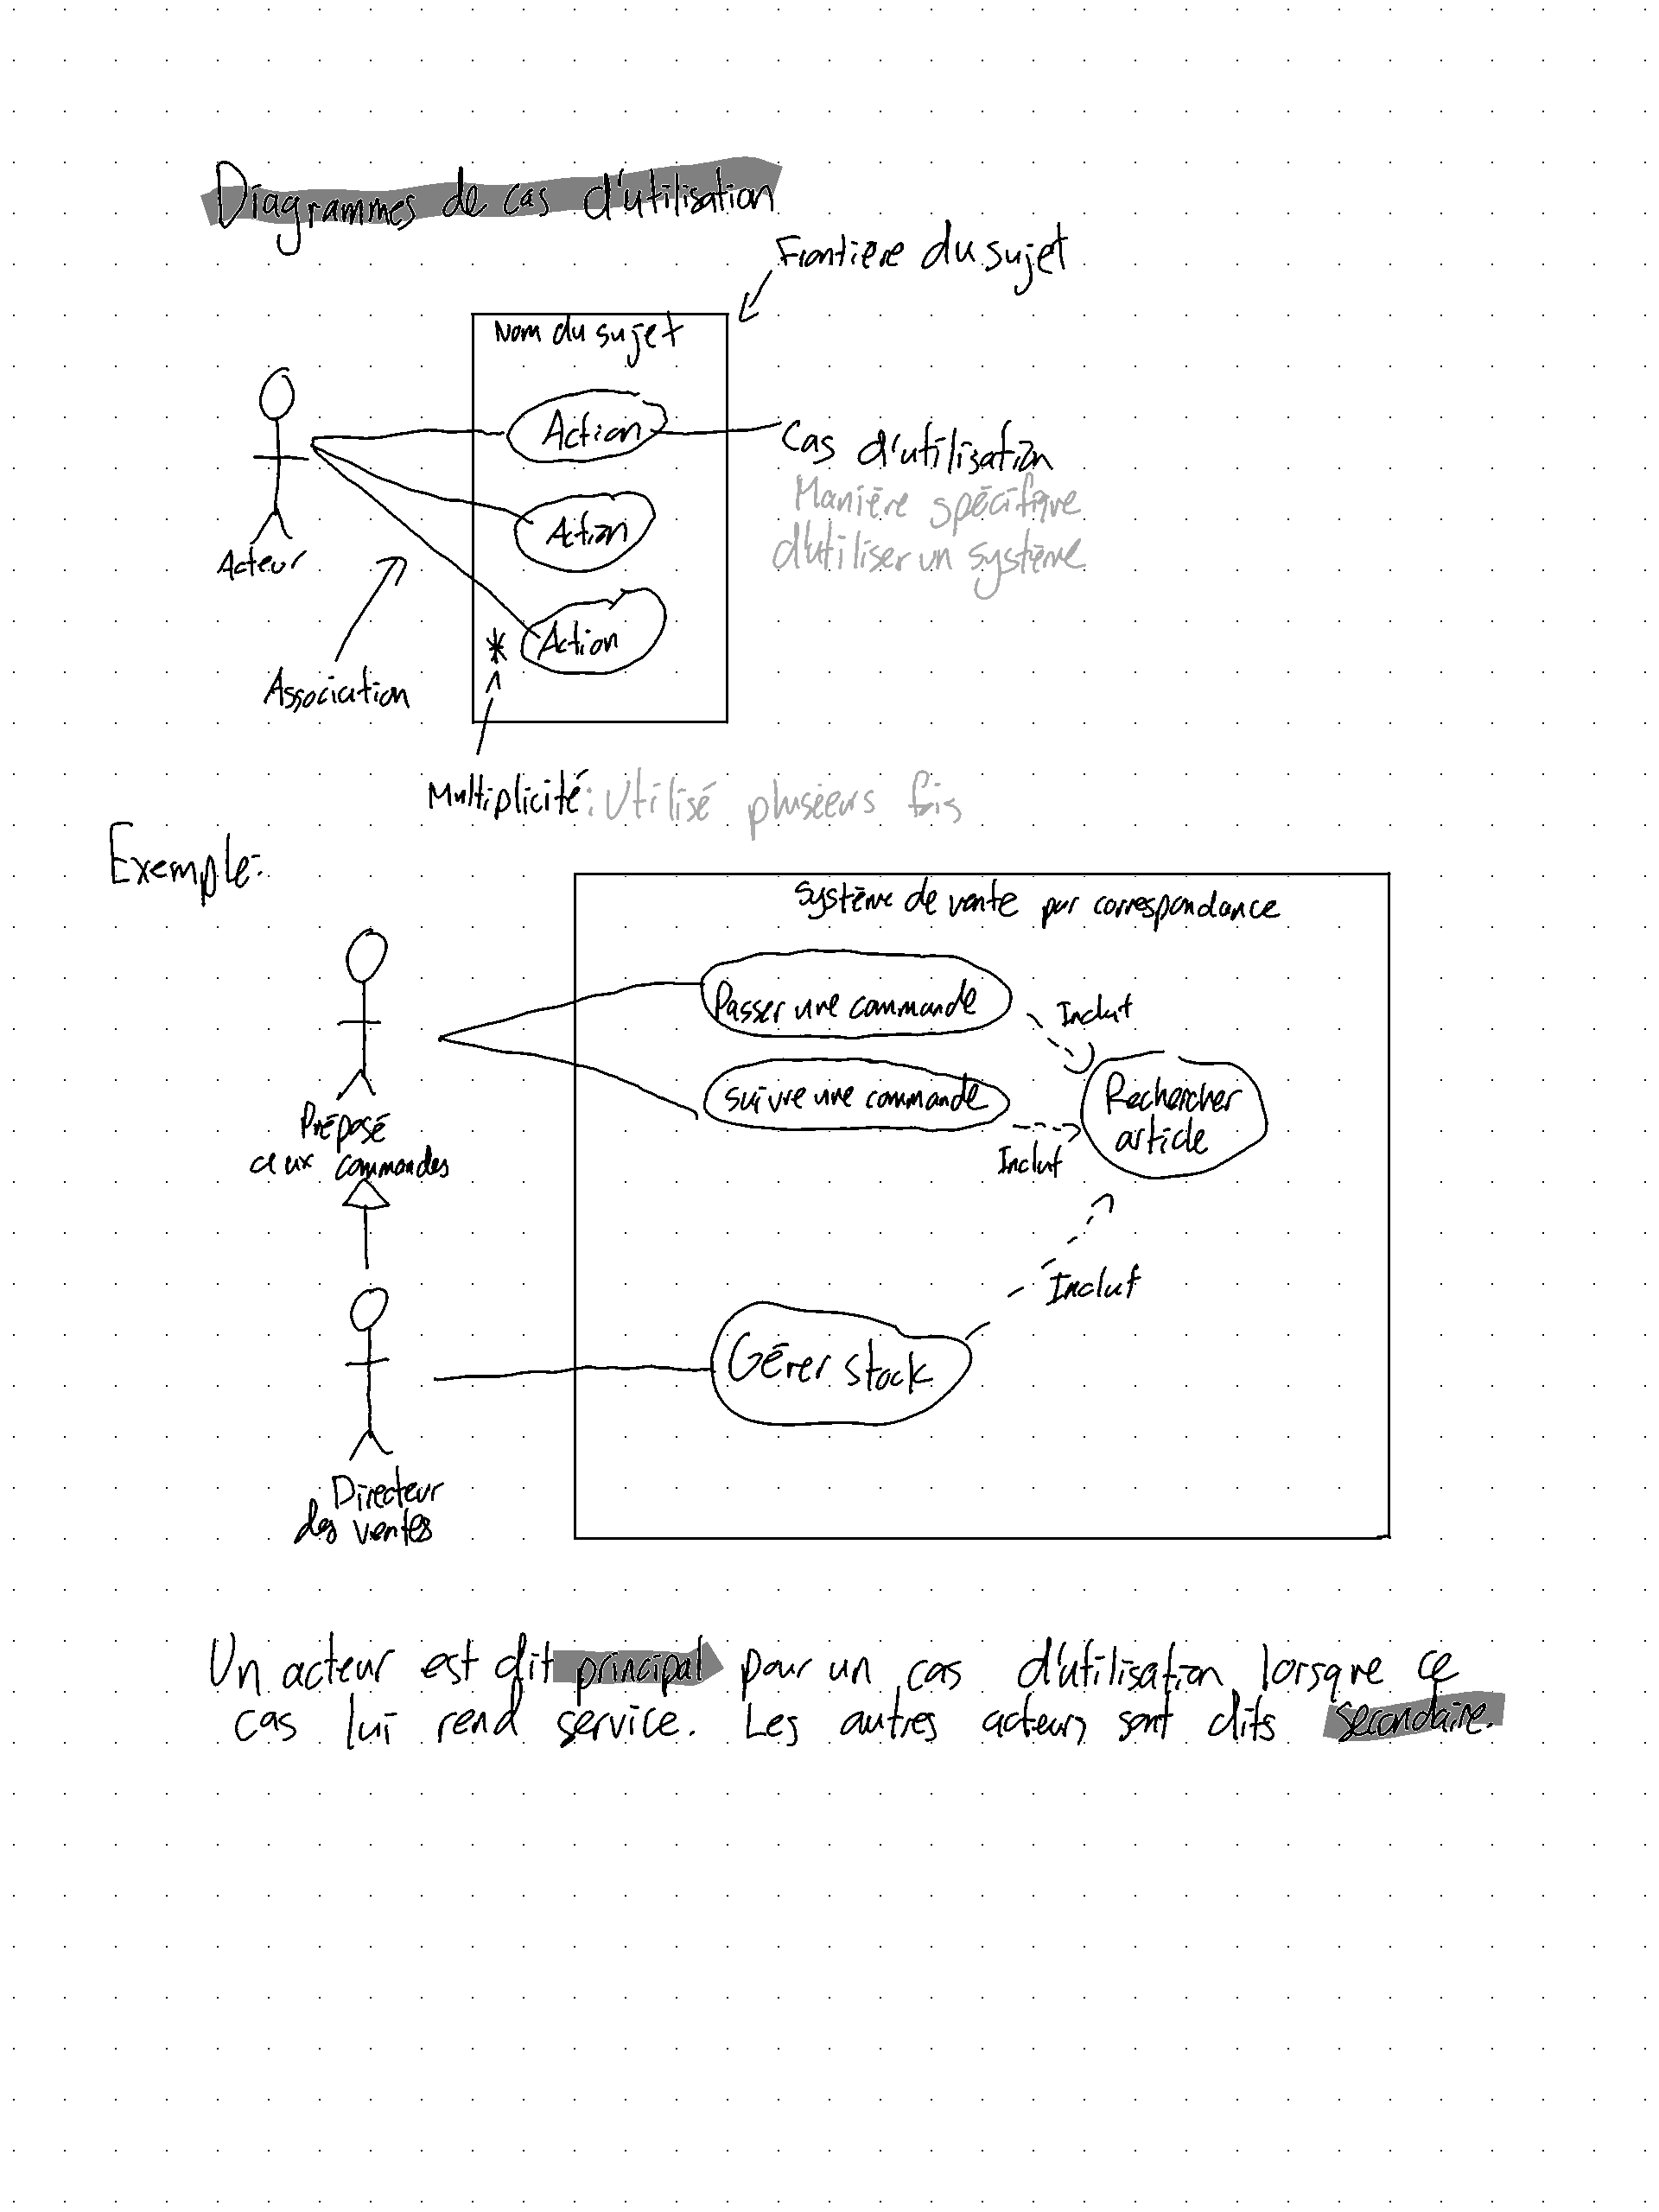 Diagrammes de cas d'utilisation
Frontière du sujet
Nom du sujet
Action
Cas d'utilisation
Manière spécifique
d'utiliser un système
Action
Acteur
Action
*
Association
Multiplicité: Utilisé pluseurs fois
Exemple:
Système de vente par correspondance
Passer une commande
Inclut
Suivre une commande
Rechercher
article
Inclut
Préposé
aux commandes
Inclut
Gérer stock
Directeur
des ventes
Un acteur est dit principal pour un cas d'utilisation lorsque ce
cas lui rend service. Les autres acteurs sont dits secondaire.